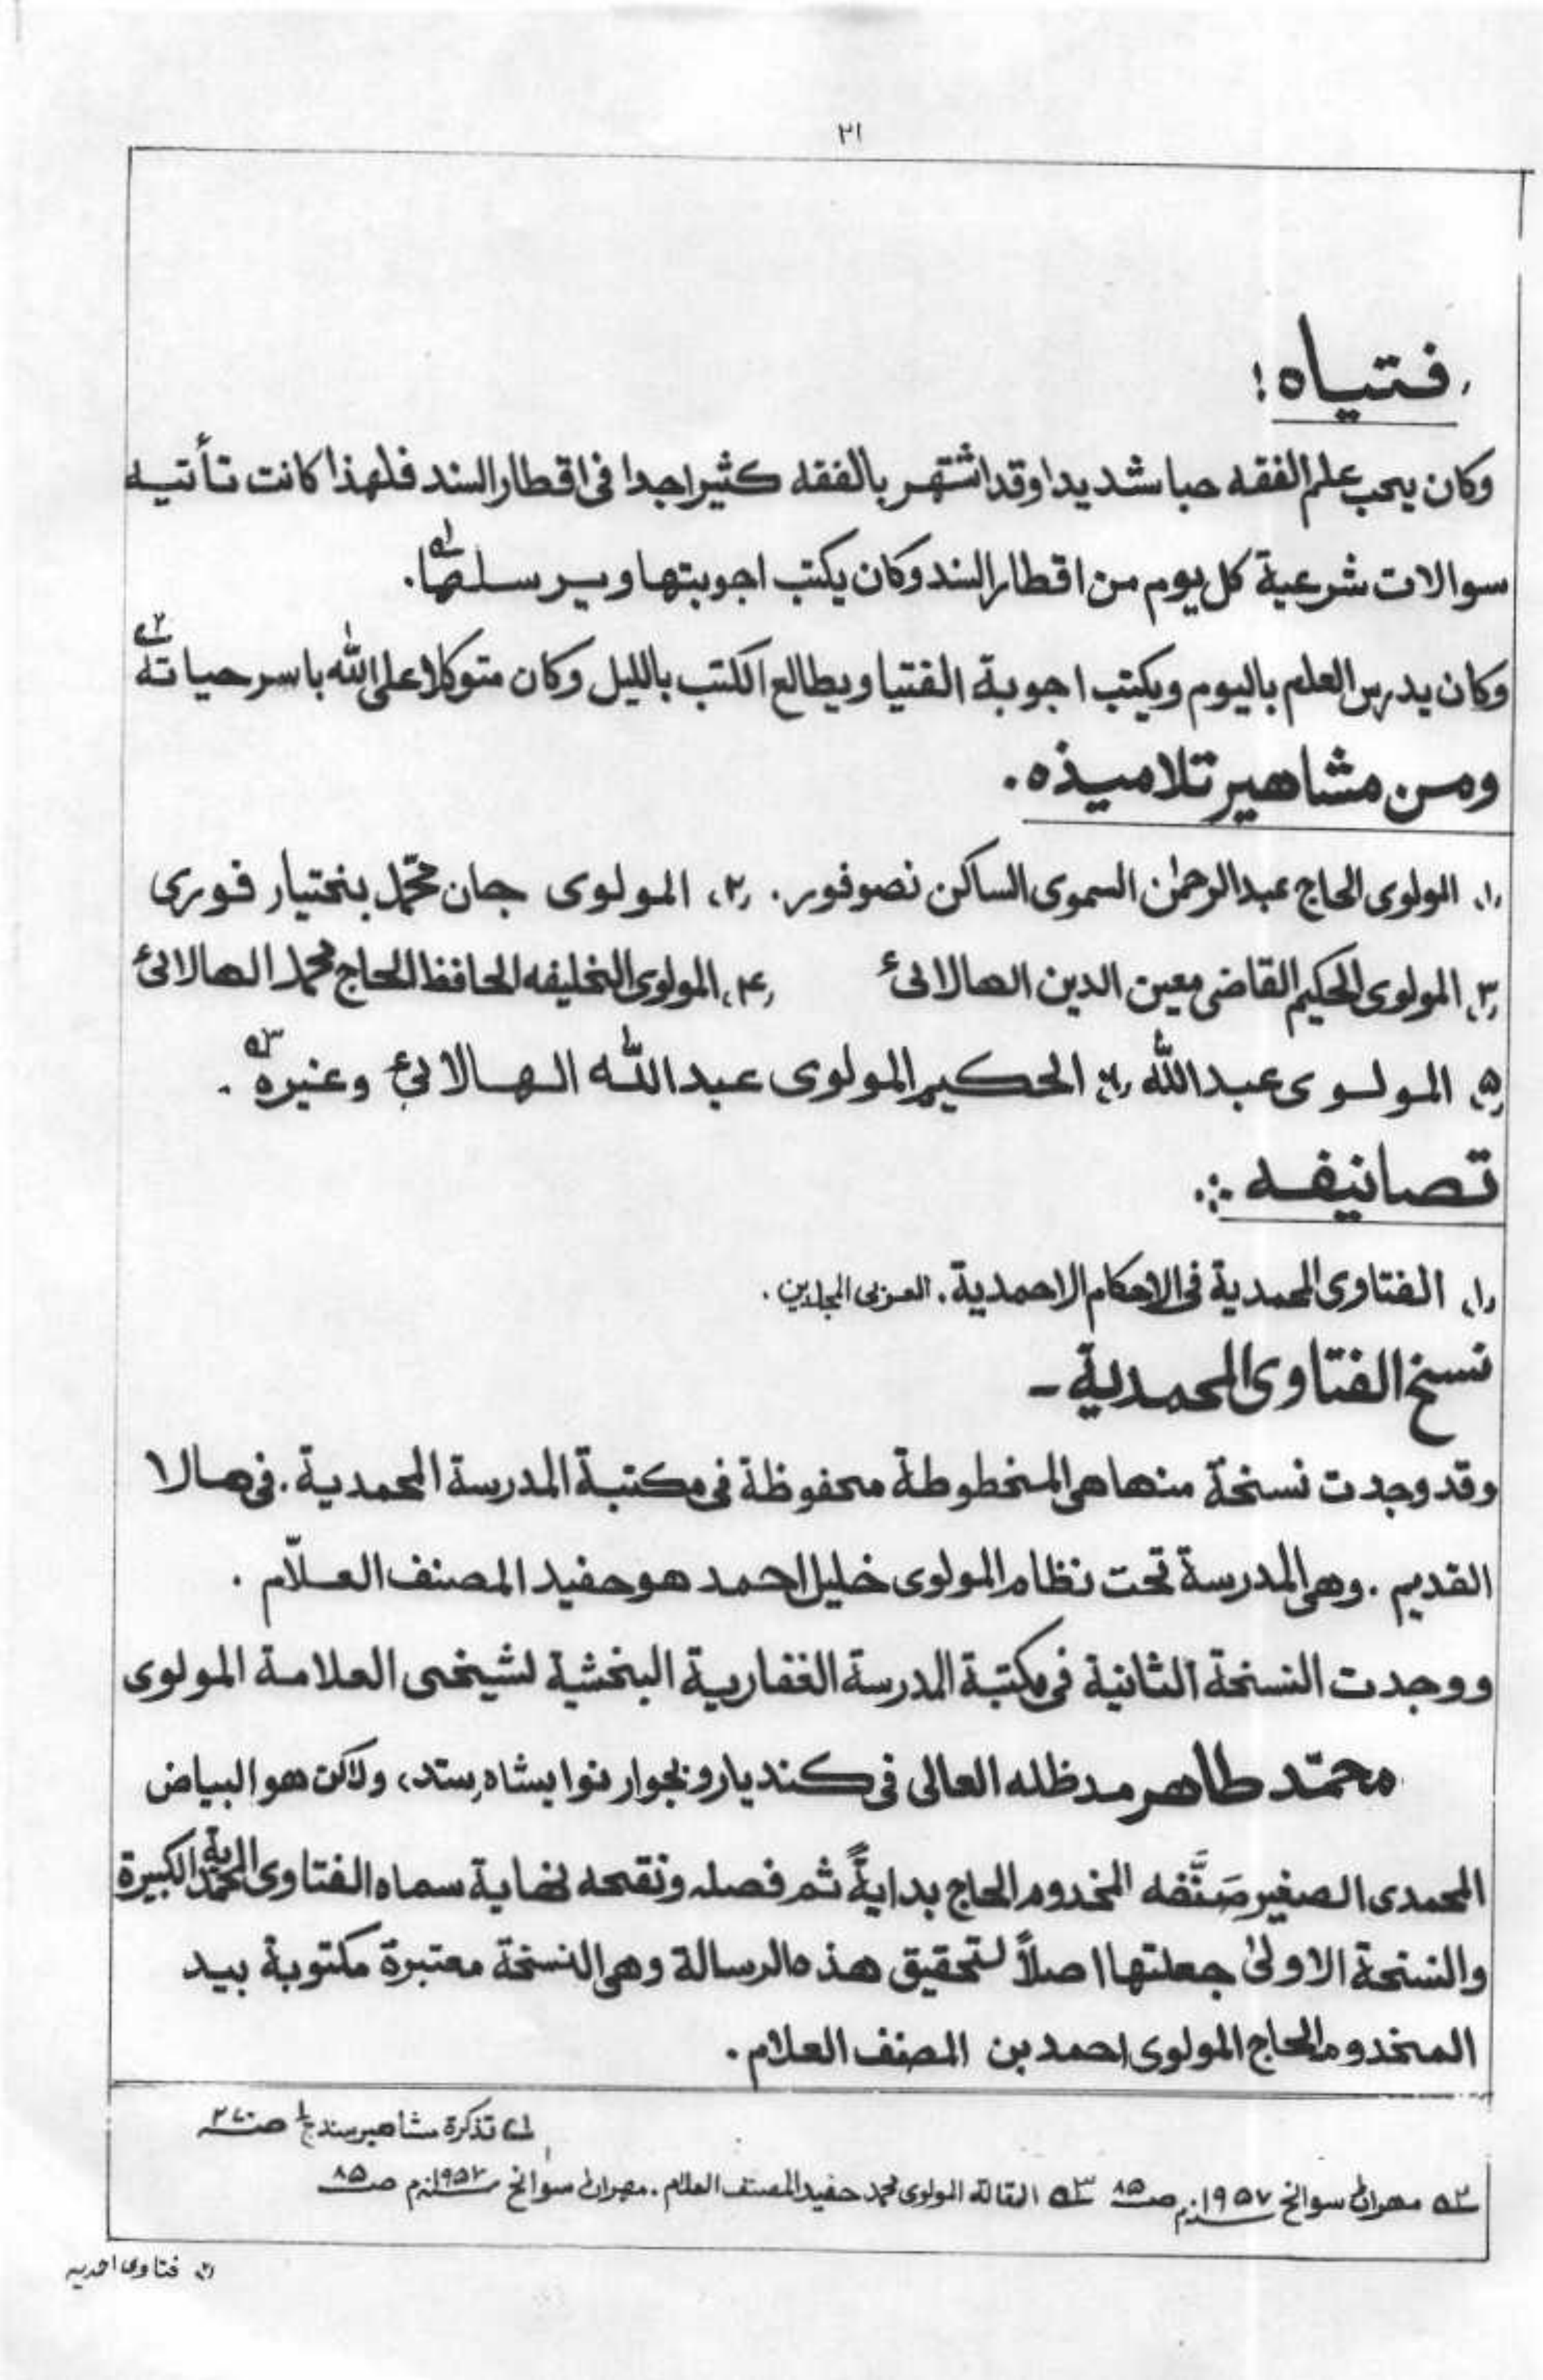 ٢١
فتياه:
وكان يحب علم الفقه حبا شديدا وقد اشتهر بالفقه كثيرا جدا فى اقطار السند فلهذا كانت تأتيه
سوالات شرعية كل يوم من اقطار السند وكان يكتب اجوبتها ويرسلها. ١ه
وكان يدرس العلم باليوم ويكتب اجوبة الفتيا ويطالع الكتب بالليل وكان متوكلا على الله باسر حياته ٢ه
ومن مشاهير تلاميذه.
(١) المولوى الحاج عبدالرحمٰن السموى الساكن نصرفور. (٢) المولوى جان محمّد بختيار فورى
(٣) المولوى الحكيم القاضى معين الدين الهالائى (٤) المولوى الخليفه الحافظ الحاج محمد الهالائى
(٥) المولوى عبدالله (٦) الحكيم المولوى عبدالله الهالائى وغيره ٣ه.
تصانيفه ؞
(١) الفتاوى المحمدية فى الاحكام الاحمدية. العربى المجلدين.
نسخ الفتاوى المحمدية -
وقد وجدت نسخة منها هى المخطوطة محفوظة فى مكتبة المدرسة المحمدية. فى هالا
القديم. وهى المدرسة تحت نظام المولوى خليل احمد هو حفيد المصنف العلّام.
ووجدت النسخة الثانية فى مكتبة المدرسة الغفارية البخشية لشيخى العلامة المولوى
محمّد طاهر مدظله العالى فى كنديارو بجوار نوابشاه، ولاكن هو البياض
المحمدى الصغير صَنَّفه المخدوم الحاج بدايةً ثم فصله ونقحه نهاية سماه الفتاوى المحمدية الكبيرة
والنسخة الاولىٰ جعلتها اصلاً لتحقيق هذه الرسالة وهى النسخة معتبرة مكتوبة بيد
المخدوم الحاج المولوى احمد بن المصنف العلام.
١ه تذكرة مشاهير سند ج١ ص
٢ه مهران سوانح ١٩٥٧م ص ٨٥ ٣ه المقالة المولوى محمد حفيد المصنف العلام. مهران سوانح ١٩٥٧م ص ٨٥
(٢) فتاوى احمديه